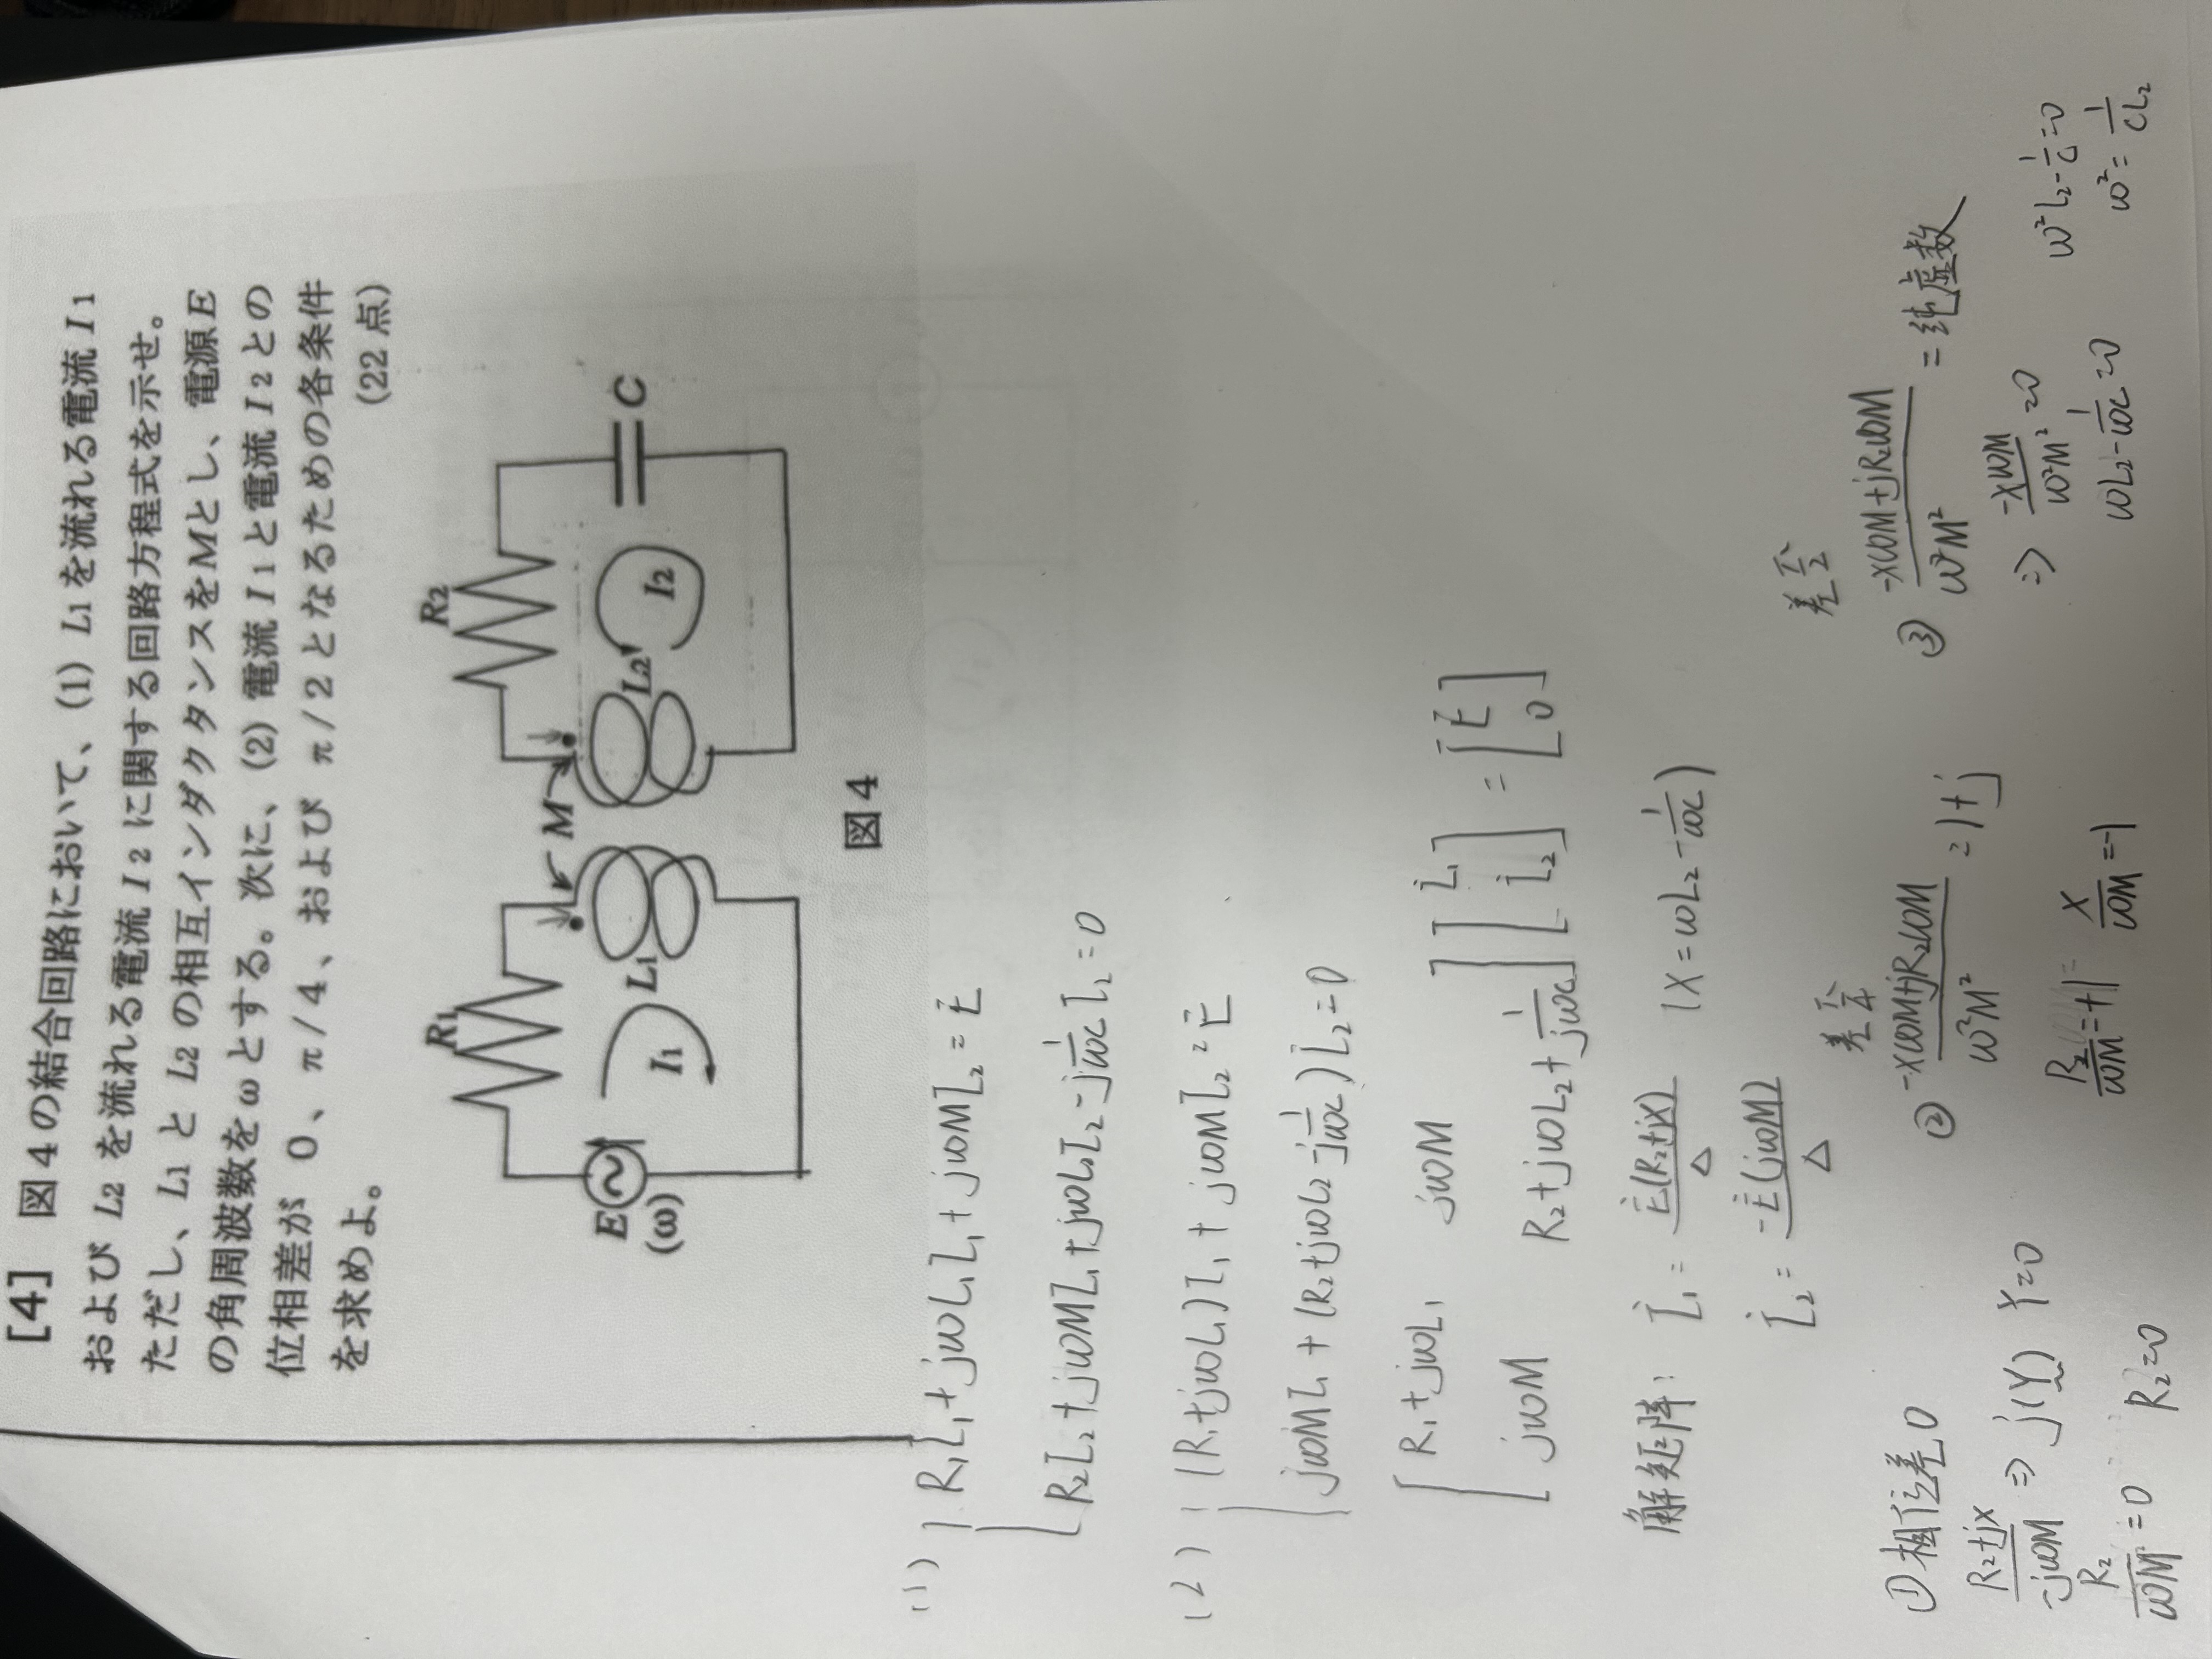 [4] 図4の結合回路において、(1) L1を流れる電流 I1
および L2 を流れる電流 I2 に関する回路方程式を示せ。
ただし、L1 と L2 の相互インダクタンスをMとし、電源E
の角周波数をωとする。次に、(2) 電流 I1と電流 I2との
位相差が 0、π/4、および π/2となるための各条件
を求めよ。 (22点)
R1
R2
M
E
(ω)
I1
L1
L2
I2
C
図4
(1) R₁İ₁ + jωL₁İ₁ + jωMİ₂ = Ė
R₂İ₂ + jωMİ₁ + jωL₂İ₂ - j1/ωC İ₂ = 0
(2) (R₁+jωL₁)İ₁ + jωMİ₂ = Ė
jωMİ₁ + (R₂+jωL₂-j1/ωC)İ₂ = 0
[R₁+jωL₁ jωM] [İ₁] = [Ė]
[jωM R₂+jωL₂+1/jωC] [İ₂] [0]
解矩阵: İ₁ = Ė(R₂+jX)/Δ (X = ωL₂ - 1/ωC)
İ₂ = -Ė(jωM)/Δ
①相位差0
(R₂+jX)/(-jωM) ⇒ j(Y) Y=0
R₂/ωM = 0 R₂=0
差π/4
② (-XωM+jR₂ωM)/(ω²M²) = 1+j
R₂/ωM = +1 X/ωM = -1
差π/2
③ (-XωM+jR₂ωM)/(ω²M²) = 纯虚数
⇒ -XωM/(ω²M²) = 0
ωL₂ - 1/ωC = 0
ω²L₂ - 1/C = 0
ω² = 1/CL₂